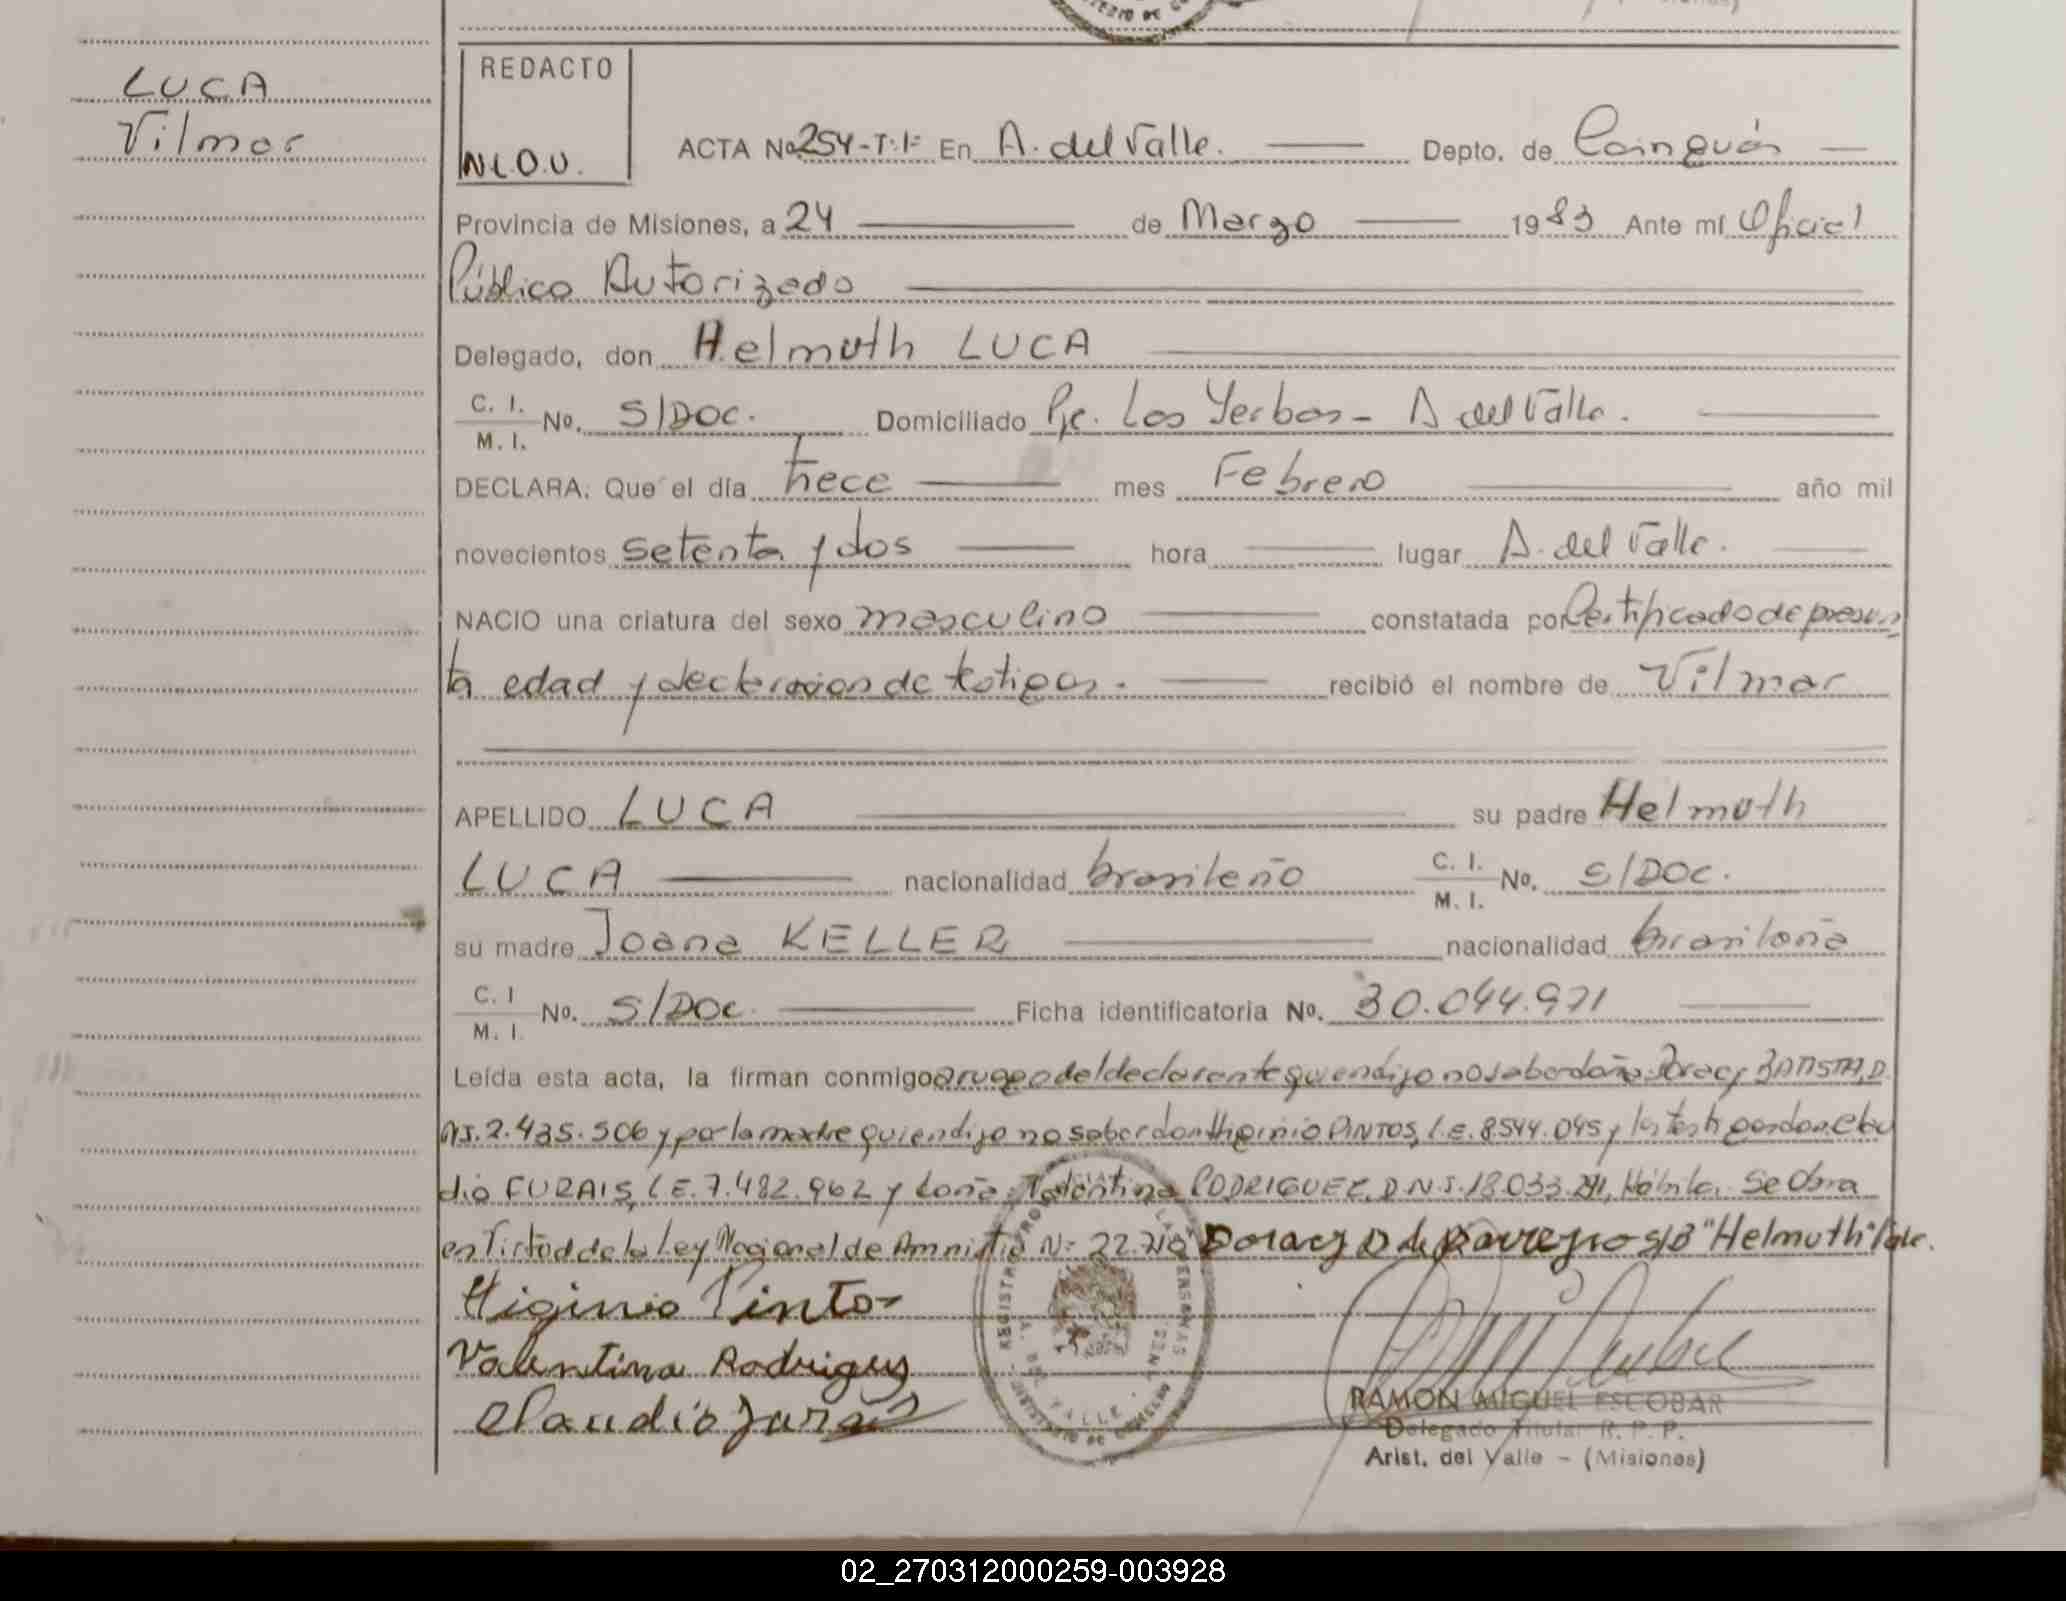 LUCA
Vilmar
REDACTO
N.L.O.U.
ACTA No 254-T:I- En A. del Valle. Depto. de Cainguás
Provincia de Misiones, a 24 de Marzo 1983 Ante mí Oficial
Público Autorizado
Delegado, don Helmuth LUCA
C. I. / M. I. No. S/DOC. Domiciliado Pje. Los Yerbas - A del Valle.
DECLARA: Que el día trece mes Febrero año mil
novecientos setenta y dos hora lugar A. del Valle.
NACIO una criatura del sexo masculino constatada por Certificado de presun
ta edad y declaración de testigos. recibió el nombre de Vilmar
APELLIDO LUCA su padre Helmuth
LUCA nacionalidad brasileño C. I. / M. I. No. S/DOC.
su madre Joana KELLER nacionalidad brasileña
C. I / M. I. No. S/DOC. Ficha identificatoria No. 30.044.971
Leída esta acta, la firman conmigo a ruego del declarante quien dijo no saber doña Doracy BATISTA, D.
N.I. 2.435.506 y por la madre quien dijo no saber don Higinio PINTOS, L.E. 8544.045 y los testigos don Clau
dio FURAIS, L.E. 7.482.962 y doña Valentina RODRIGUEZ, D.N.I. 18.033. Hábiles. Se Obra
en Virtud de la Ley Nacional de Amnistía N: 22.710 Doracy D de S/B "Helmuth" Vale.
Higinio Pinto
Valentina Rodriguez
Claudio
REGISTRO PROV. DE LAS PERSONAS
A. DEL VALLE
RAMON MIGUEL ESCOBAR
Delegado Titular R. P. P.
Arist. del Valle - (Misiones)
02_270312000259-003928